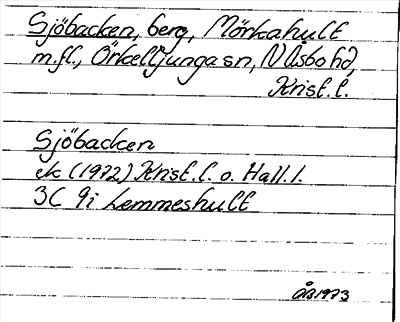 Sjöbacken, berg, Mörkahult
m.fl., Örkelljunga sn, N Åsbo hd,
Krist. l.
Sjöbacken
ek (1972) Krist. l. o. Hall. l.
3C 9i Lemmeshult
ÅB 1973